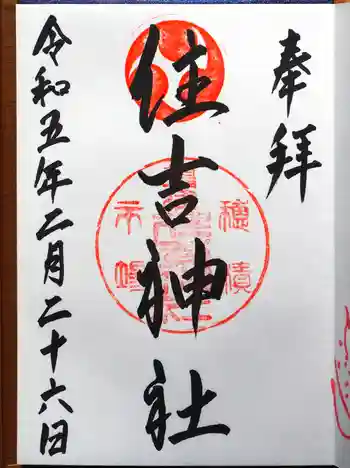 奉拝
住吉神社
令和五年二月二十六日
穂積